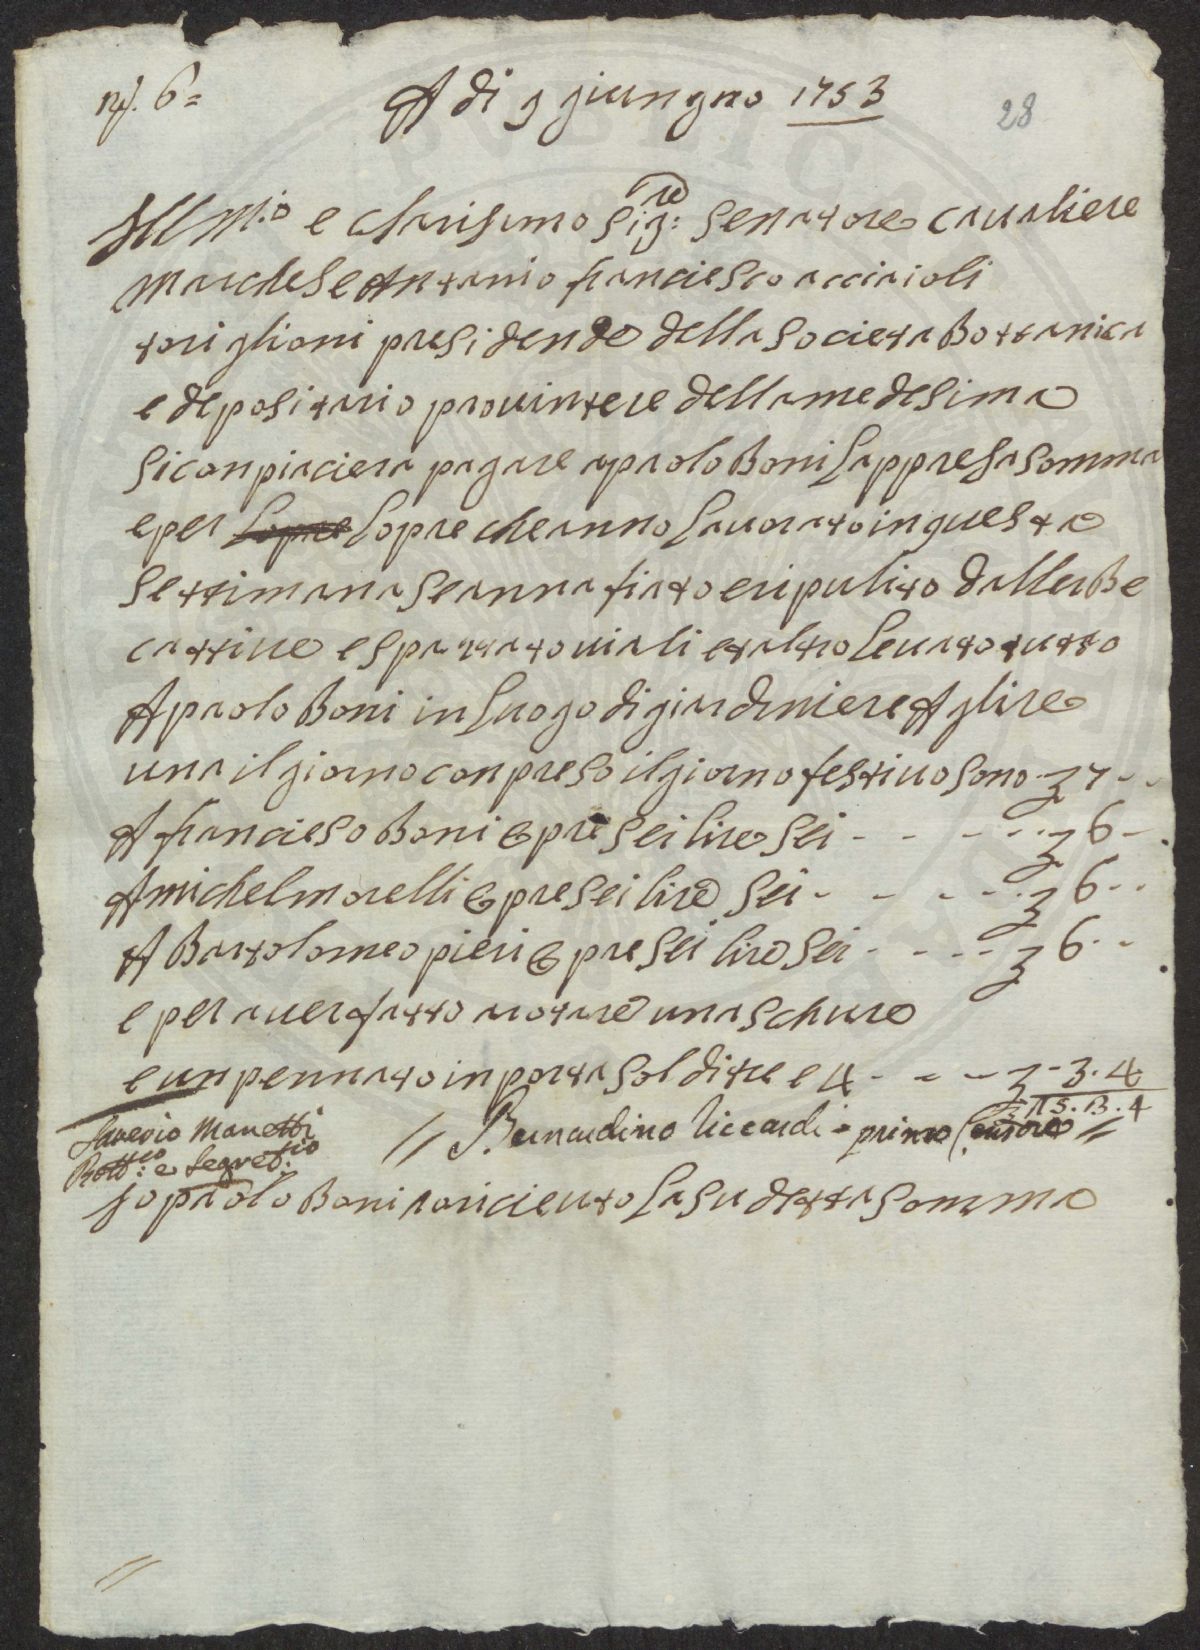 N. 6=
A di 9 giungno 1753
28
Ill.mo e charisimo Sig:re Senatore Cavaliere
Marchese Antonio francieSco acciaioli
toriglioni preSidende della Societa Bottanica
e depoSitario provintere della medeSima
Si conpiaciera pagare a paolo Boni L'appreSa Somma
e per Lopre Lopre che anno Lavorato in questa
Settimana Se anna fiato e ripulito dallerBe
cattive e Spazzato viali et altro Levato tutto
A paolo Boni in Luogo di giardiniere A lire
una il giorno conpreso il giorno festivo Sono ʒ 7 - -
A francieSo Boni e pre Sei lire Sei - - - - - ʒ 6 -
A michel morelli e pre Sei lire Sei - - - - - ʒ 6 - -
A Bartolomeo pieri e pre Sei lire Sei - - - - ʒ 6 - -
e per aver fatto arotare una Schure
e un pennato inporta Soldi tre e 4 - - - ʒ - 3. 4
ʒ 25. 13. 4
Saverio Manetti // Bernardino Riccardi primo Censore //
Bott:co e Segret:rio
Jo paolo Boni o ricieuto La Su detta Somma
//